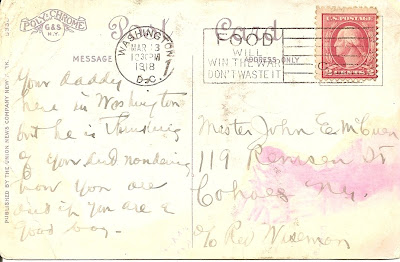 POLY-CHROME
G & S
N.Y.
Post Card
MESSAGE
ADDRESS ONLY
WASHINGTON
MAR 13
1030PM
1918
D.C.
FOOD
WILL
WIN THE WAR
DON'T WASTE IT
U.S. POSTAGE
2 CENTS 2
PUBLISHED BY THE UNION NEWS COMPANY NEW
Your daddy
here in Washington
but he is thinking
of you and wondering
how you are
and if you are a
good boy.
Master John E.
119 Remsen St
Cohoes N.Y.
c/o Rev Wiseman